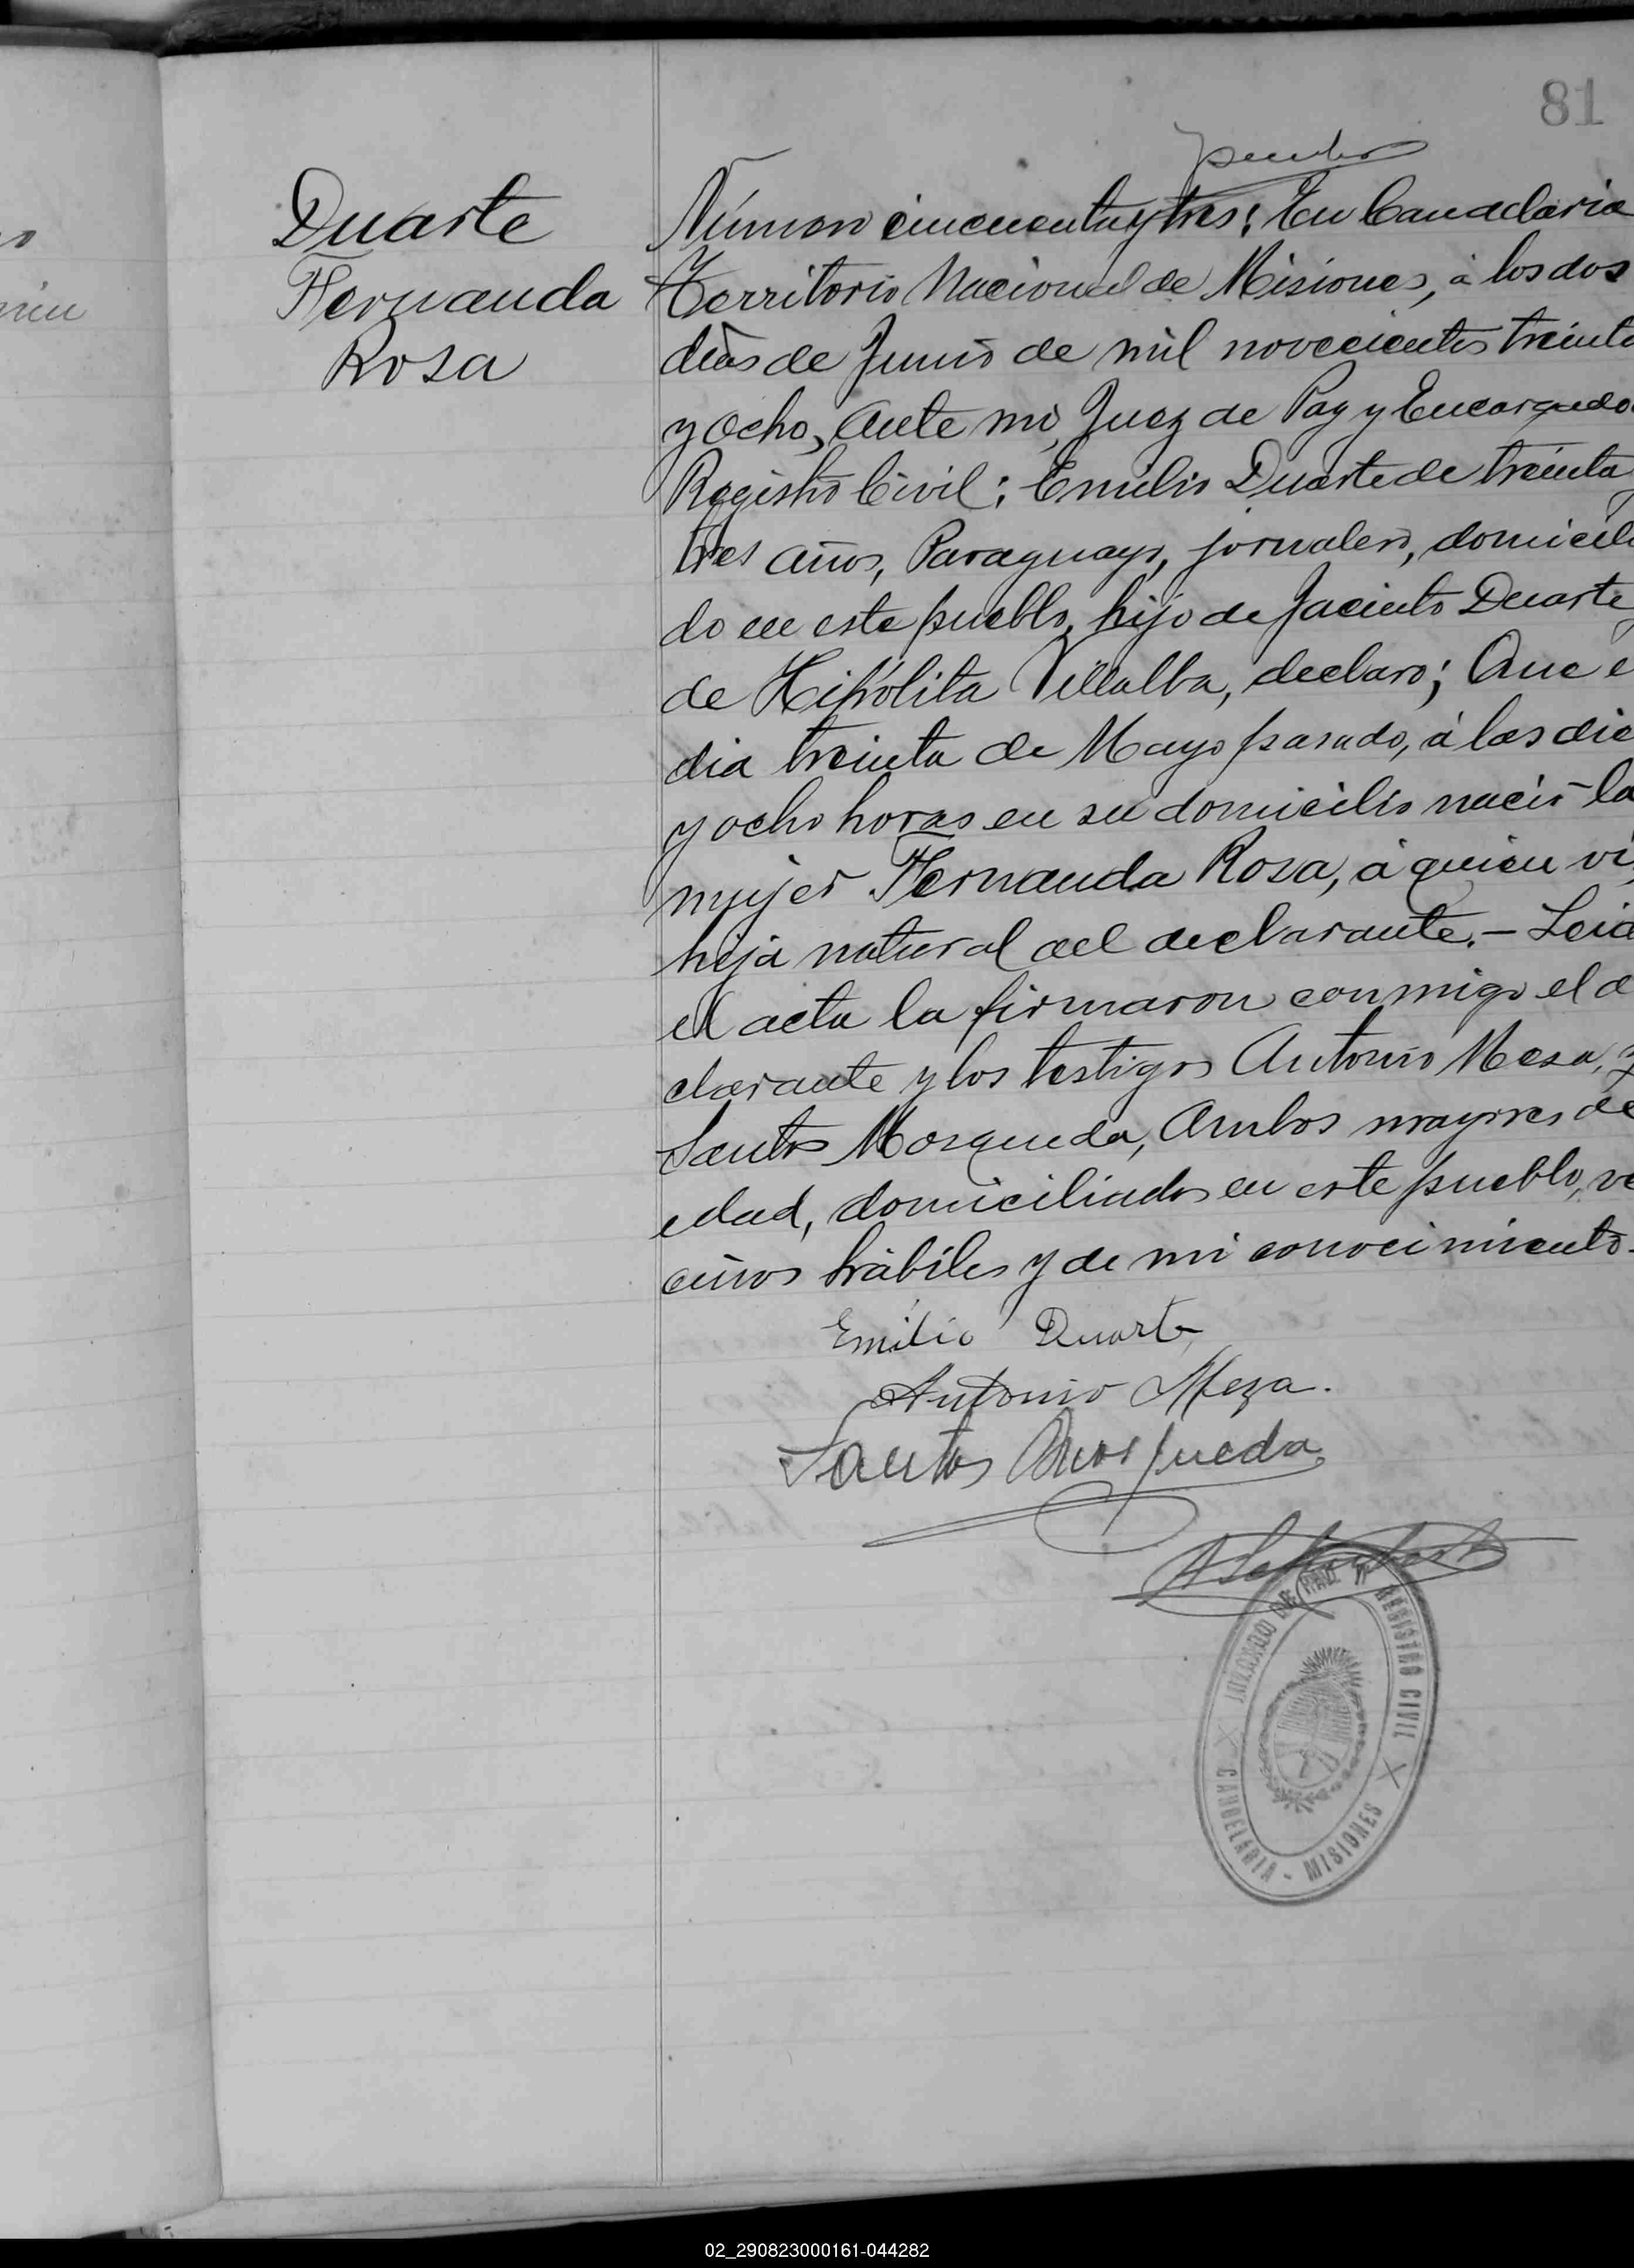 81
Duarte
Fernanda
Rosa
Número cincuentaytres: En Canadlaria
Territorio Nacional de Misiones, á los dos
días de Junio de mil novecientos treinta
y ocho, ante mi, Juez de Paz y Encargado
Registro Civil: Emilio Duarte de treinta y
tres años, Paraguayo, jornalero, domicilia
do en este pueblo, hijo de Jacinto Duarte y
de Hipólita Villalba, declaró; Que e
dia treinta de Mayo pasado, á las die
y ocho horas en su domicilio nació la
mujer Fernanda Rosa, á quien vi,
hija natural del declarante.- Leid
el acta la firmaron conmigo el d
clarante y los testigos Antonio Mesa, y
Santos Mosqueda, Ambos mayores de
edad, domiciliados en este pueblo, ve
cinos hábiles y de mi conocimiento.
Emilio Duarte
Antonio Meza.
Santos Mosqueda
JUZGADO DE PAZ Y REGISTRO CIVIL
CANDELARIA - MISIONES
02_290823000161-044282